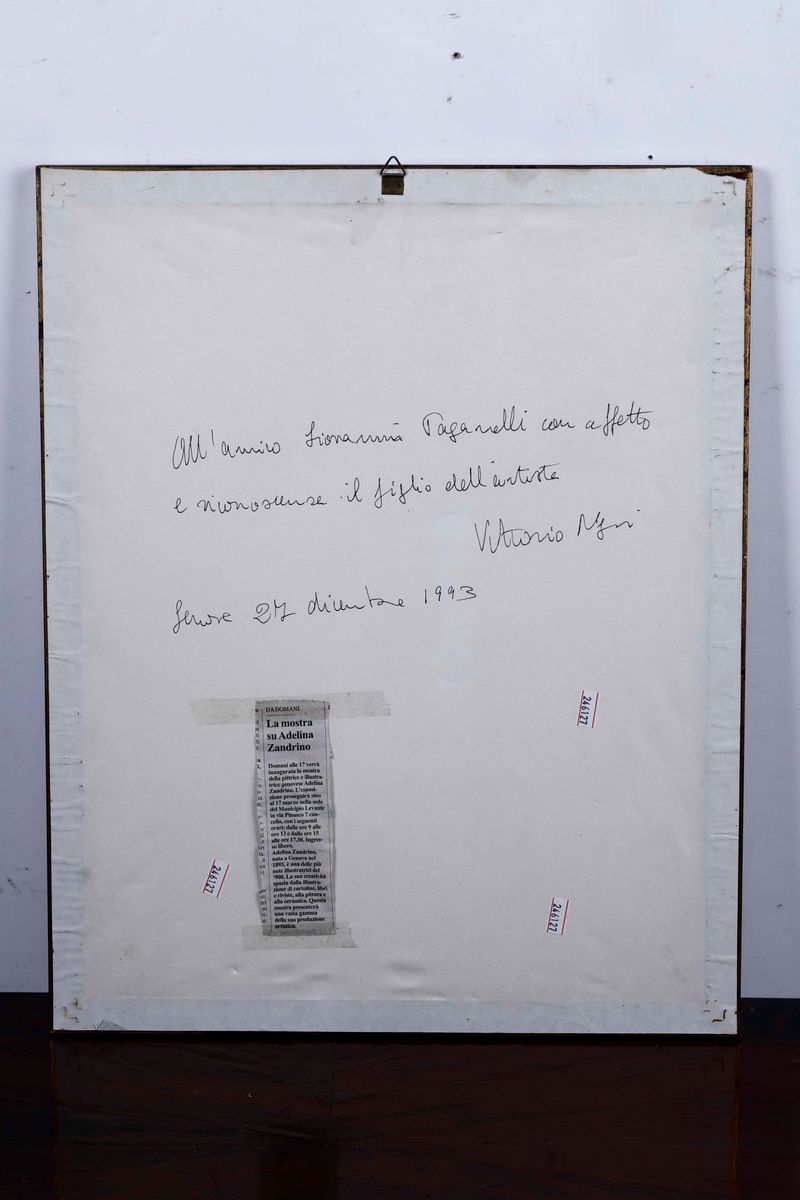 All'amico Giovanni Paganelli con affetto
e riconoscenza il figlio dell'artista
Vittorio
Genova 27 dicembre 1993
DA DOMANI
La mostra
su Adelina
Zandrino
Domani alle 17 verrà
inaugurata la mostra
della pittrice e illustra-
trice genovese Adelina
Zandrino. L'esposi-
zione proseguirà sino
al 17 marzo nella sede
del Municipio Levante
in via Pinasco 7 can-
cello, con i seguenti
orari: dalle ore 9 alle
ore 13 e dalle ore 15
alle ore 17,30. Ingres-
so libero.
Adelina Zandrino,
nata a Genova nel
1893, è una delle più
note illustratrici del
'900. La sua creatività
spazia dalla illustra-
zione di cartoline, libri
e riviste, alla pittura e
alla ceramica. Questa
mostra presenterà
una vasta gamma
della sua produzione
artistica.
246127
246127
246127